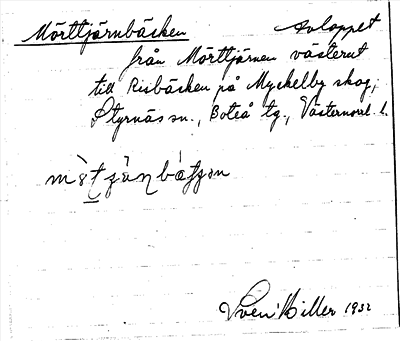 Mörttjärnbäcken Avloppet
från Mörttjärnen västerut
till Risbäcken på Myckelby skog;
Styrnäs sn., Boteå tg., Västernorrl. l.
Sven Hiller 1932